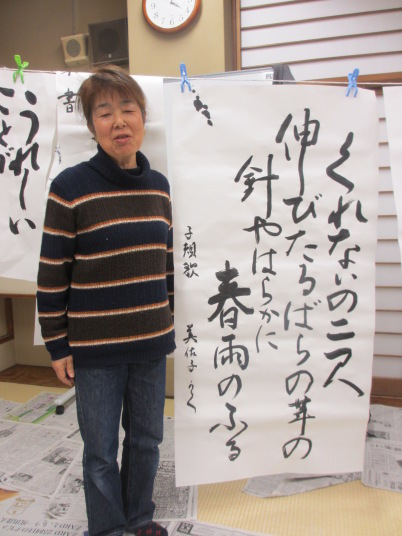 くれないの二尺
伸びたるばらの芽の
針やはらかに
春雨のふる
子規歌 美佐子かく
うれしい
ことが